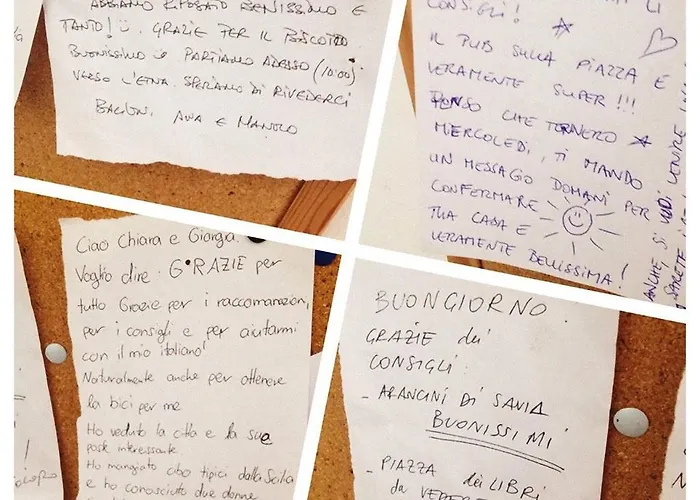 ABBIAMO RIPOSATO BENISSIMO E
TANTO! GRAZIE PER IL BISCOTTO
BUONISSIMO PARTIAMO ADESSO (10:00)
VERSO L'ETNA. SPERIAMO DI RIVEDERCI
BACIONI, E MANOLO
CONSIGLI!
IL PUB SULLA PIAZZA E
VERAMENTE SUPER!!!
PENSO CHE TORNERO
MIERCOLEDI, TI MANDO
UN MESSAGIO DOMANI PER
CONFERMARE
TUA CASA E
VERAMENTE BELLISSIMA!
ANCHE, SI VUOI VENIRE
Ciao Chiara e Giorgia.
Voglio dire: GRAZIE per
tutto Grazie per i raccomanazioni,
per i consigli e per aiutarmi
con il mio italiano!
Naturalmente anche per ottenere
la bici per me
Ho veduto la citta e la sua
poste interessante.
Ho mangiato cibo tipici dalla Sicilia
e ho conosciuto due donne
BUONGIORNO.
GRAZIE dei
CONSIGLI:
- ARANCINI DI SAVIA
BUONISSIMI
- PIAZZA dei LIBRI
da VEDERE